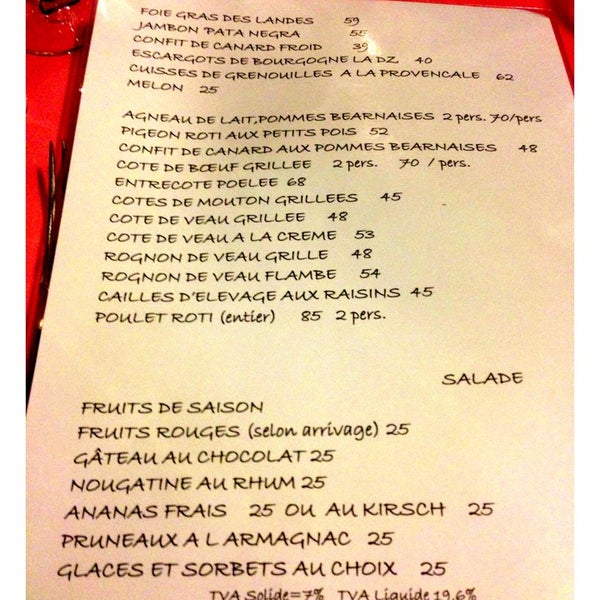 FOIE GRAS DES LANDES 59
JAMBON PATA NEGRA 55
CONFIT DE CANARD FROID 39
ESCARGOTS DE BOURGOGNE LA DZ. 40
CUISSES DE GRENOUILLES A LA PROVENCALE 62
MELON 25
AGNEAU DE LAIT,POMMES BEARNAISES 2 pers. 70/pers
PIGEON ROTI AUX PETITS POIS 52
CONFIT DE CANARD AUX POMMES BEARNAISES 48
COTE DE BŒUF GRILLEE 2 pers. 70 / pers.
ENTRECOTE POELEE 68
COTES DE MOUTON GRILLEES 45
COTE DE VEAU GRILLEE 48
COTE DE VEAU A LA CREME 53
ROGNON DE VEAU GRILLE 48
ROGNON DE VEAU FLAMBE 54
CAILLES D'ELEVAGE AUX RAISINS 45
POULET ROTI (entier) 85 2 pers.
SALADE
FRUITS DE SAISON
FRUITS ROUGES (selon arrivage) 25
GÂTEAU AU CHOCOLAT 25
NOUGATINE AU RHUM 25
ANANAS FRAIS 25 OU AU KIRSCH 25
PRUNEAUX A L ARMAGNAC 25
GLACES ET SORBETS AU CHOIX 25
TVA Solide=7% TVA Liquide 19,6%